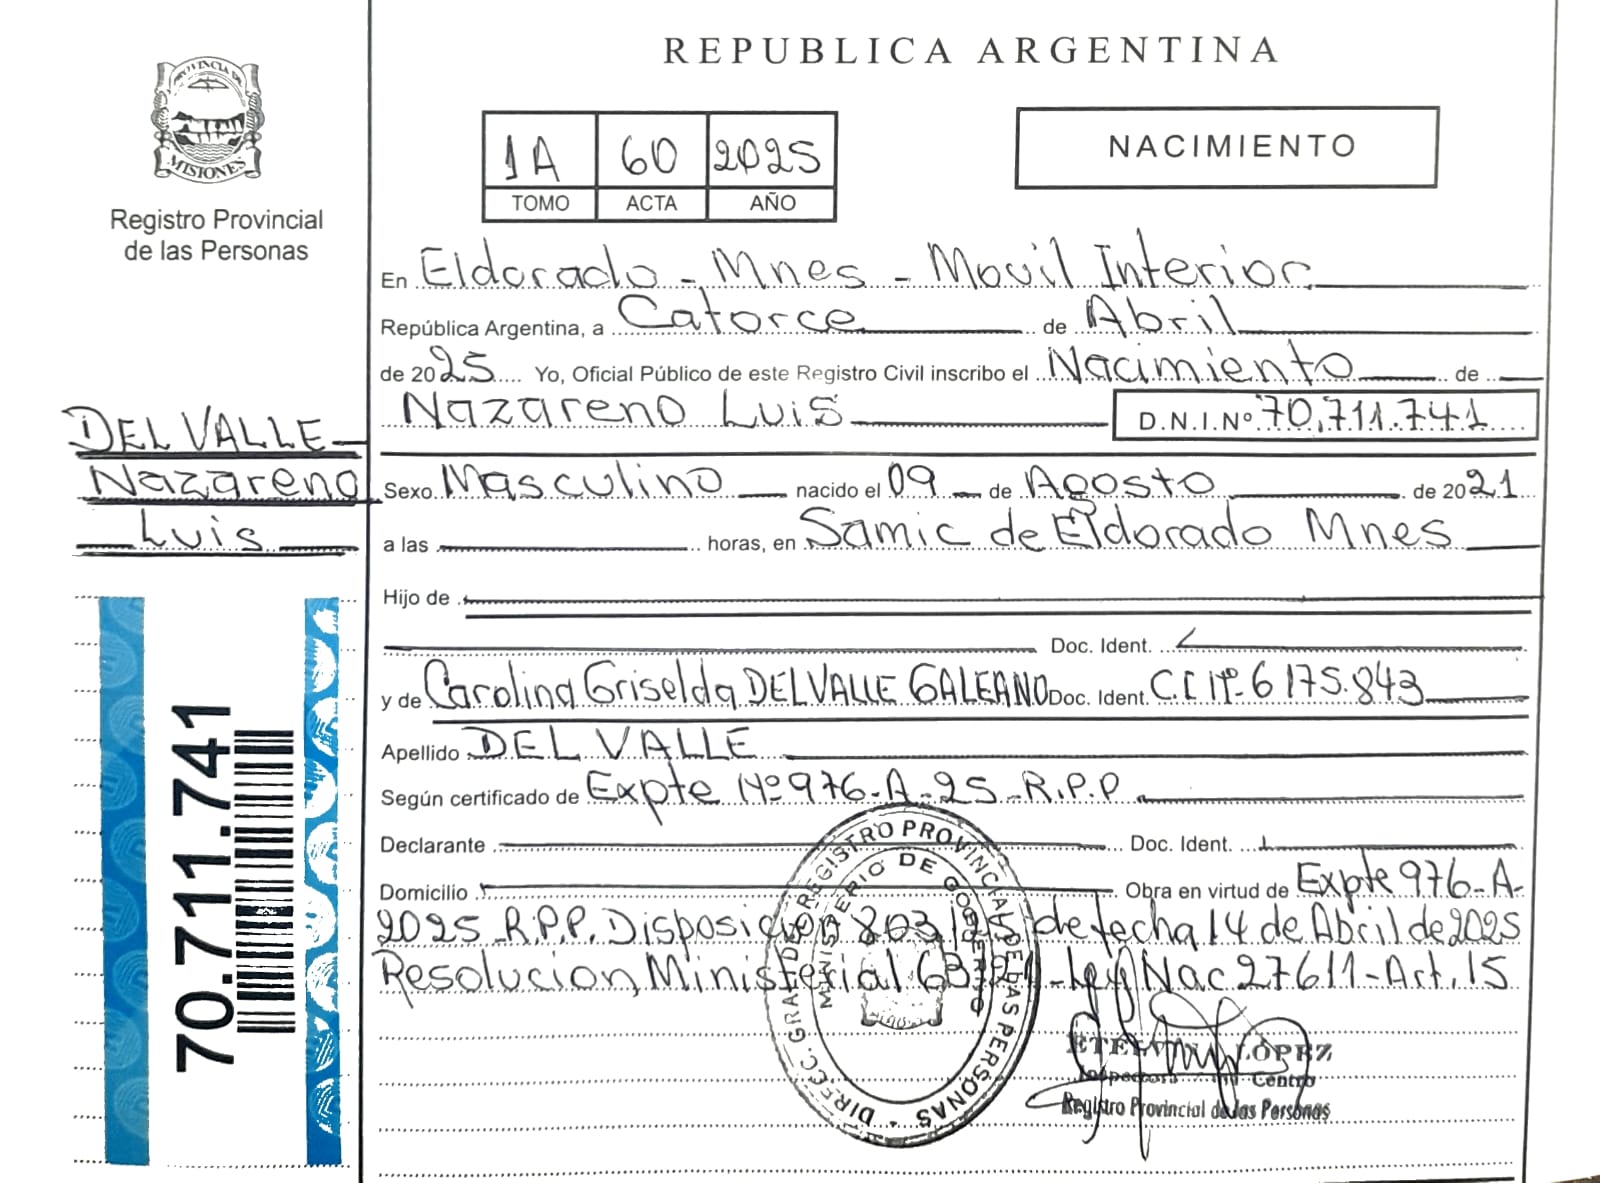 REPUBLICA ARGENTINA
PROVINCIA DE
MISIONES
Registro Provincial
de las Personas
1A 60 2025
TOMO ACTA AÑO
NACIMIENTO
En Eldorado - Mnes - Movil Interior
República Argentina, a Catorce de Abril
de 2025 Yo, Oficial Público de este Registro Civil inscribo el Nacimiento de
Nazareno Luis D.N.I.Nº 70.711.741
DEL VALLE
Nazareno
Luis
Sexo Masculino nacido el 09 de Agosto de 2021
a las horas, en Samic de Eldorado Mnes
Hijo de
Doc. Ident.
y de Carolina Griselda DEL VALLE GALEANO Doc. Ident. C.I Nº 6175.843
Apellido DEL VALLE
Según certificado de Expte Nº 976-A-25-R.P.P
Declarante Doc. Ident.
Domicilio Obra en virtud de Expte 976-A-
2025 R.P.P. Disposición 803/25 de fecha 14 de Abril de 2025
Resolucion Ministerial - Ley Nac 27611-Art. 15
70.711.741
DIREC. GRAL. DE REGISTRO PROVINCIAL DE LAS PERSONAS
MINISTERIO DE GOBIERNO
LÓPEZ
Centro
Registro Provincial de las Personas